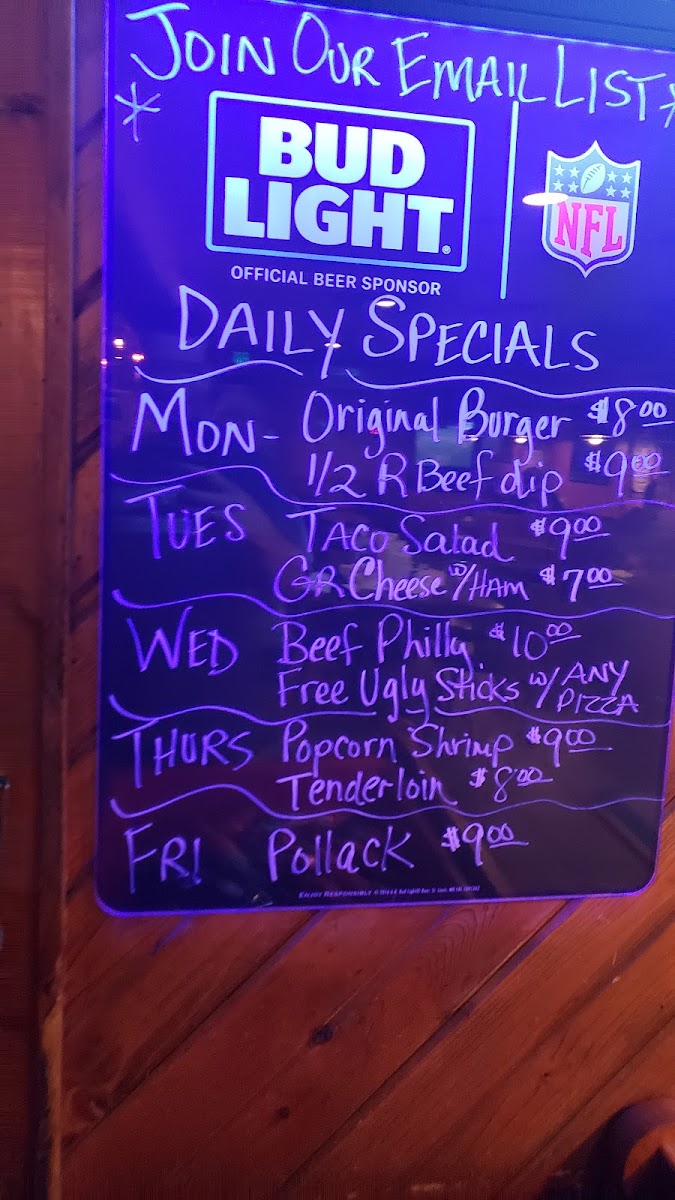 JOIN OUR EMAIL LIST
BUD
LIGHT
NFL
OFFICIAL BEER SPONSOR
DAILY SPECIALS
MON- Original Burger $8.00
1/2 R Beef dip $9.00
TUES TACO Salad $9.00
GR Cheese w/HAM $7.00
WED Beef Philly $10.00
Free Ugly Sticks w/ ANY PIZZA
THURS Popcorn Shrimp $9.00
Tenderloin $8.00
FRI Pollack $9.00
ENJOY RESPONSIBLY